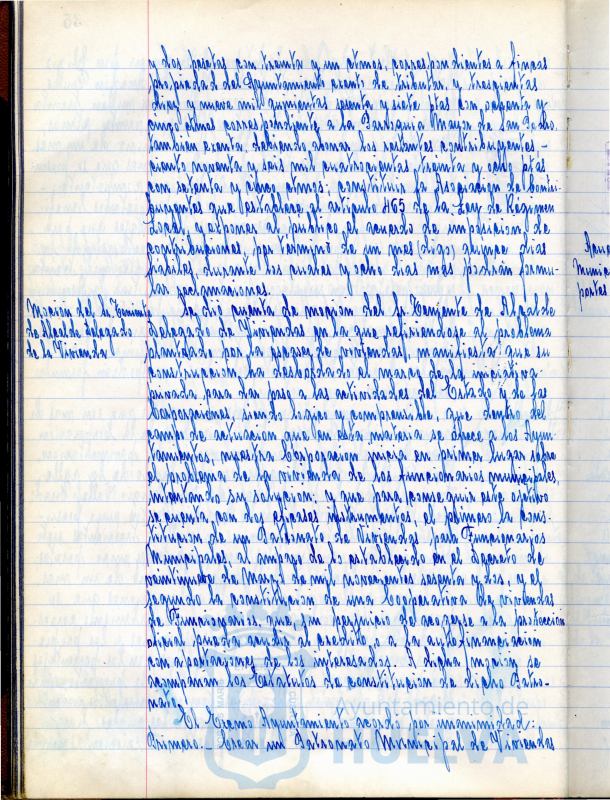 y dos pesetas con treinta y un ctmos, correspondientes a fincas
propiedad del Ayuntamiento exento de tributar, y trescientas
diez y nueve mil quinientas sesenta y siete ptas con ochenta y
cinco ctmos correspondiente a la Parroquia Mayor de San Pedro,
tambien exenta, debiendo abonar los restantes contribuyentes
ciento noventa y seis mil cuatrocientas treinta y ocho ptas
con setenta y cinco ctmos; constituir la Asociacion de Contri-
buyentes que establece el articulo 465 de la Ley de Régimen
Local, y exponer al publico el acuerdo de imposicion de
contribuciones, por término de un mes (digo) quince dias
habiles, durante los cuales y ocho dias mas podrán formu-
lar reclamaciones.
Moción del Sr. Teniente
de Alcalde delegado
de la Vivienda
Se dió cuenta de mocion del Sr. Teniente de Alcalde
delegado de Viviendas en la que refiriendose al problema
planteado por la escasez de viviendas, manifiesta que su
construccion, ha desbordado el marco de la iniciativa
privada para dar paso a las actividades del Estado y de las
Corporaciones siendo logico y comprensible, que dentro del
campo de actuacion que en esta materia se ofrece a los Ayun-
tamientos, nuestra Corporacion inicia en primer lugar sobre
el problema de la vivienda de los funcionarios municipales,
intentando su solucion; y que para conseguir este objetivo
se cuenta con dos eficaces instrumentos, el primero la cons-
titucion de un Patronato de Viviendas para Funcionarios
Municipales, al amparo de lo establecido en el Decreto de
de Marzo de mil novecientos sesenta y dos, y el
segundo la constitucion de una Cooperativa de viviendas
de Funcionarios que, sin perjuicio del acogerse a la protección
oficial pueda acudir al credito o a la autofinanciacion
con aportaciones de los interesados. A dicha mocion se
acompañan los Estatutos de constitucion de dicho Patro-
nato.
El Excmo Ayuntamiento acordó por unanimidad:
Primero.- Crear un Patronato Municipal de Viviendas
Munici
partas
Ayuntamiento de
HUELVA